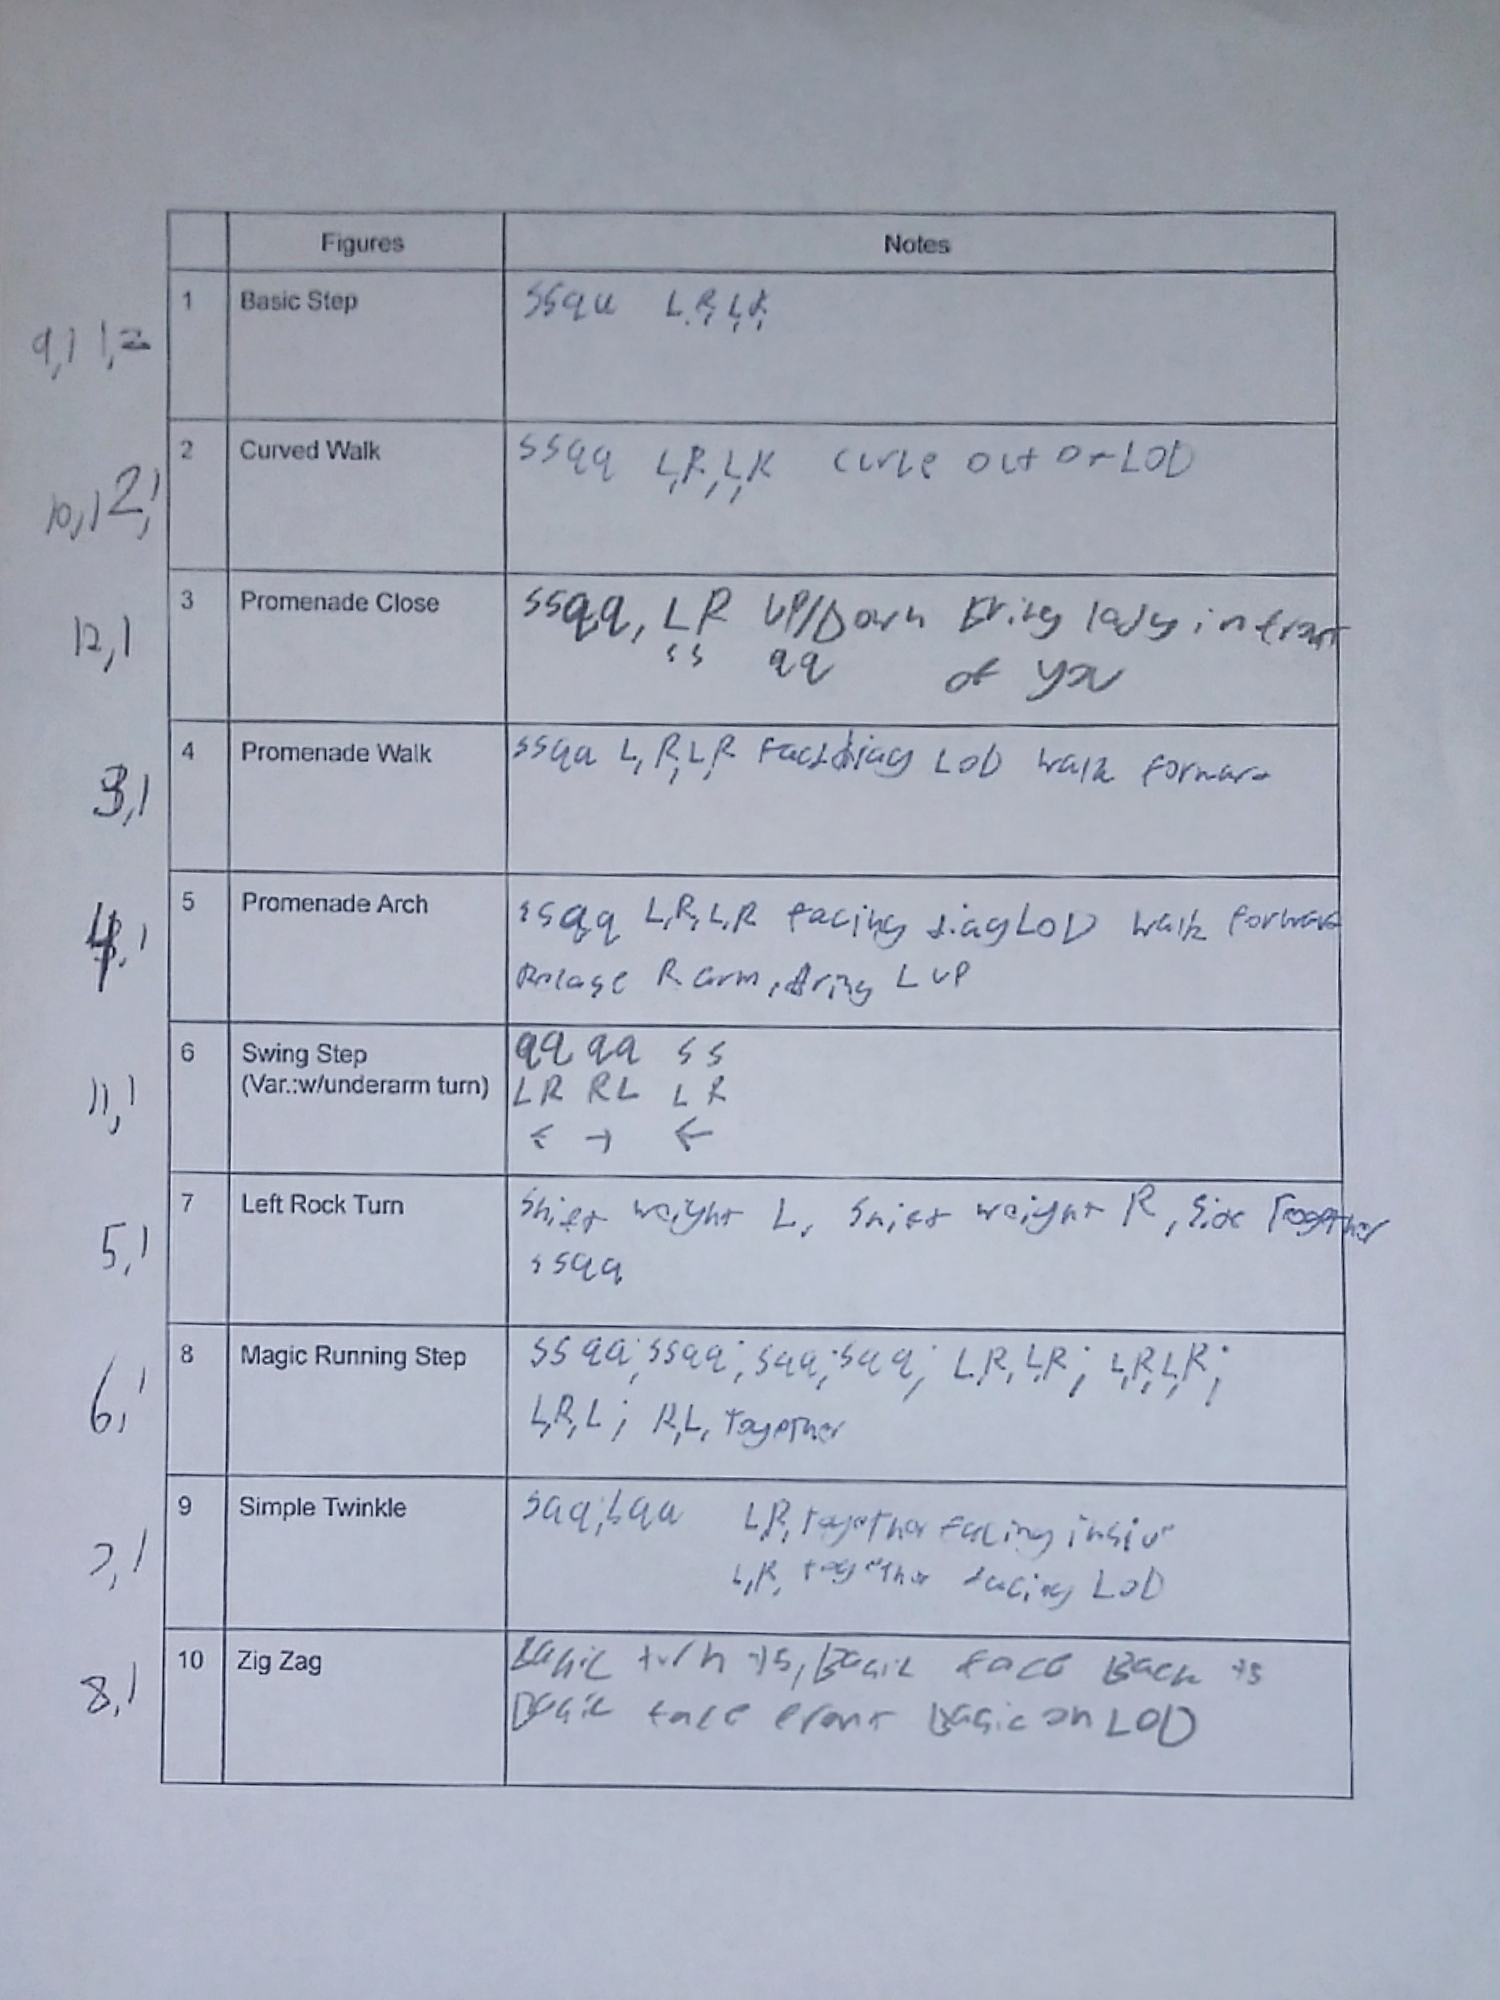 Figures Notes
9,1 1,2
1 Basic Step ssqq L,R,L,R
10,1 2,1
2 Curved Walk ssqq L,R,L,R curve out of LOD
12,1
3 Promenade Close ssqq, L R UP/Down Bring lady in front
ss qq of you
3,1
4 Promenade Walk ssqq L,R,L,R diag LOD walk forward
4,1
5 Promenade Arch ssqq L,R,L,R facing diag LOD walk forward
Release R arm, Bring L up
11,1
6 Swing Step qq qq s s
(Var.:w/underarm turn) LR RL L R
← → ←
5,1
7 Left Rock Turn Shift weight L, Shift weight R, Side Together
ssqq
6,1
8 Magic Running Step ssqq; ssqq; sqq; sqq; L,R,L,R; L,R,L,R;
L,R,L; R,L, Together
7,1
9 Simple Twinkle sqq; sqq L,R, together facing inside
L,R, together facing LOD
8,1
10 Zig Zag Basic turn 75, Basic face Back 75
Basic face front Basic on LOD